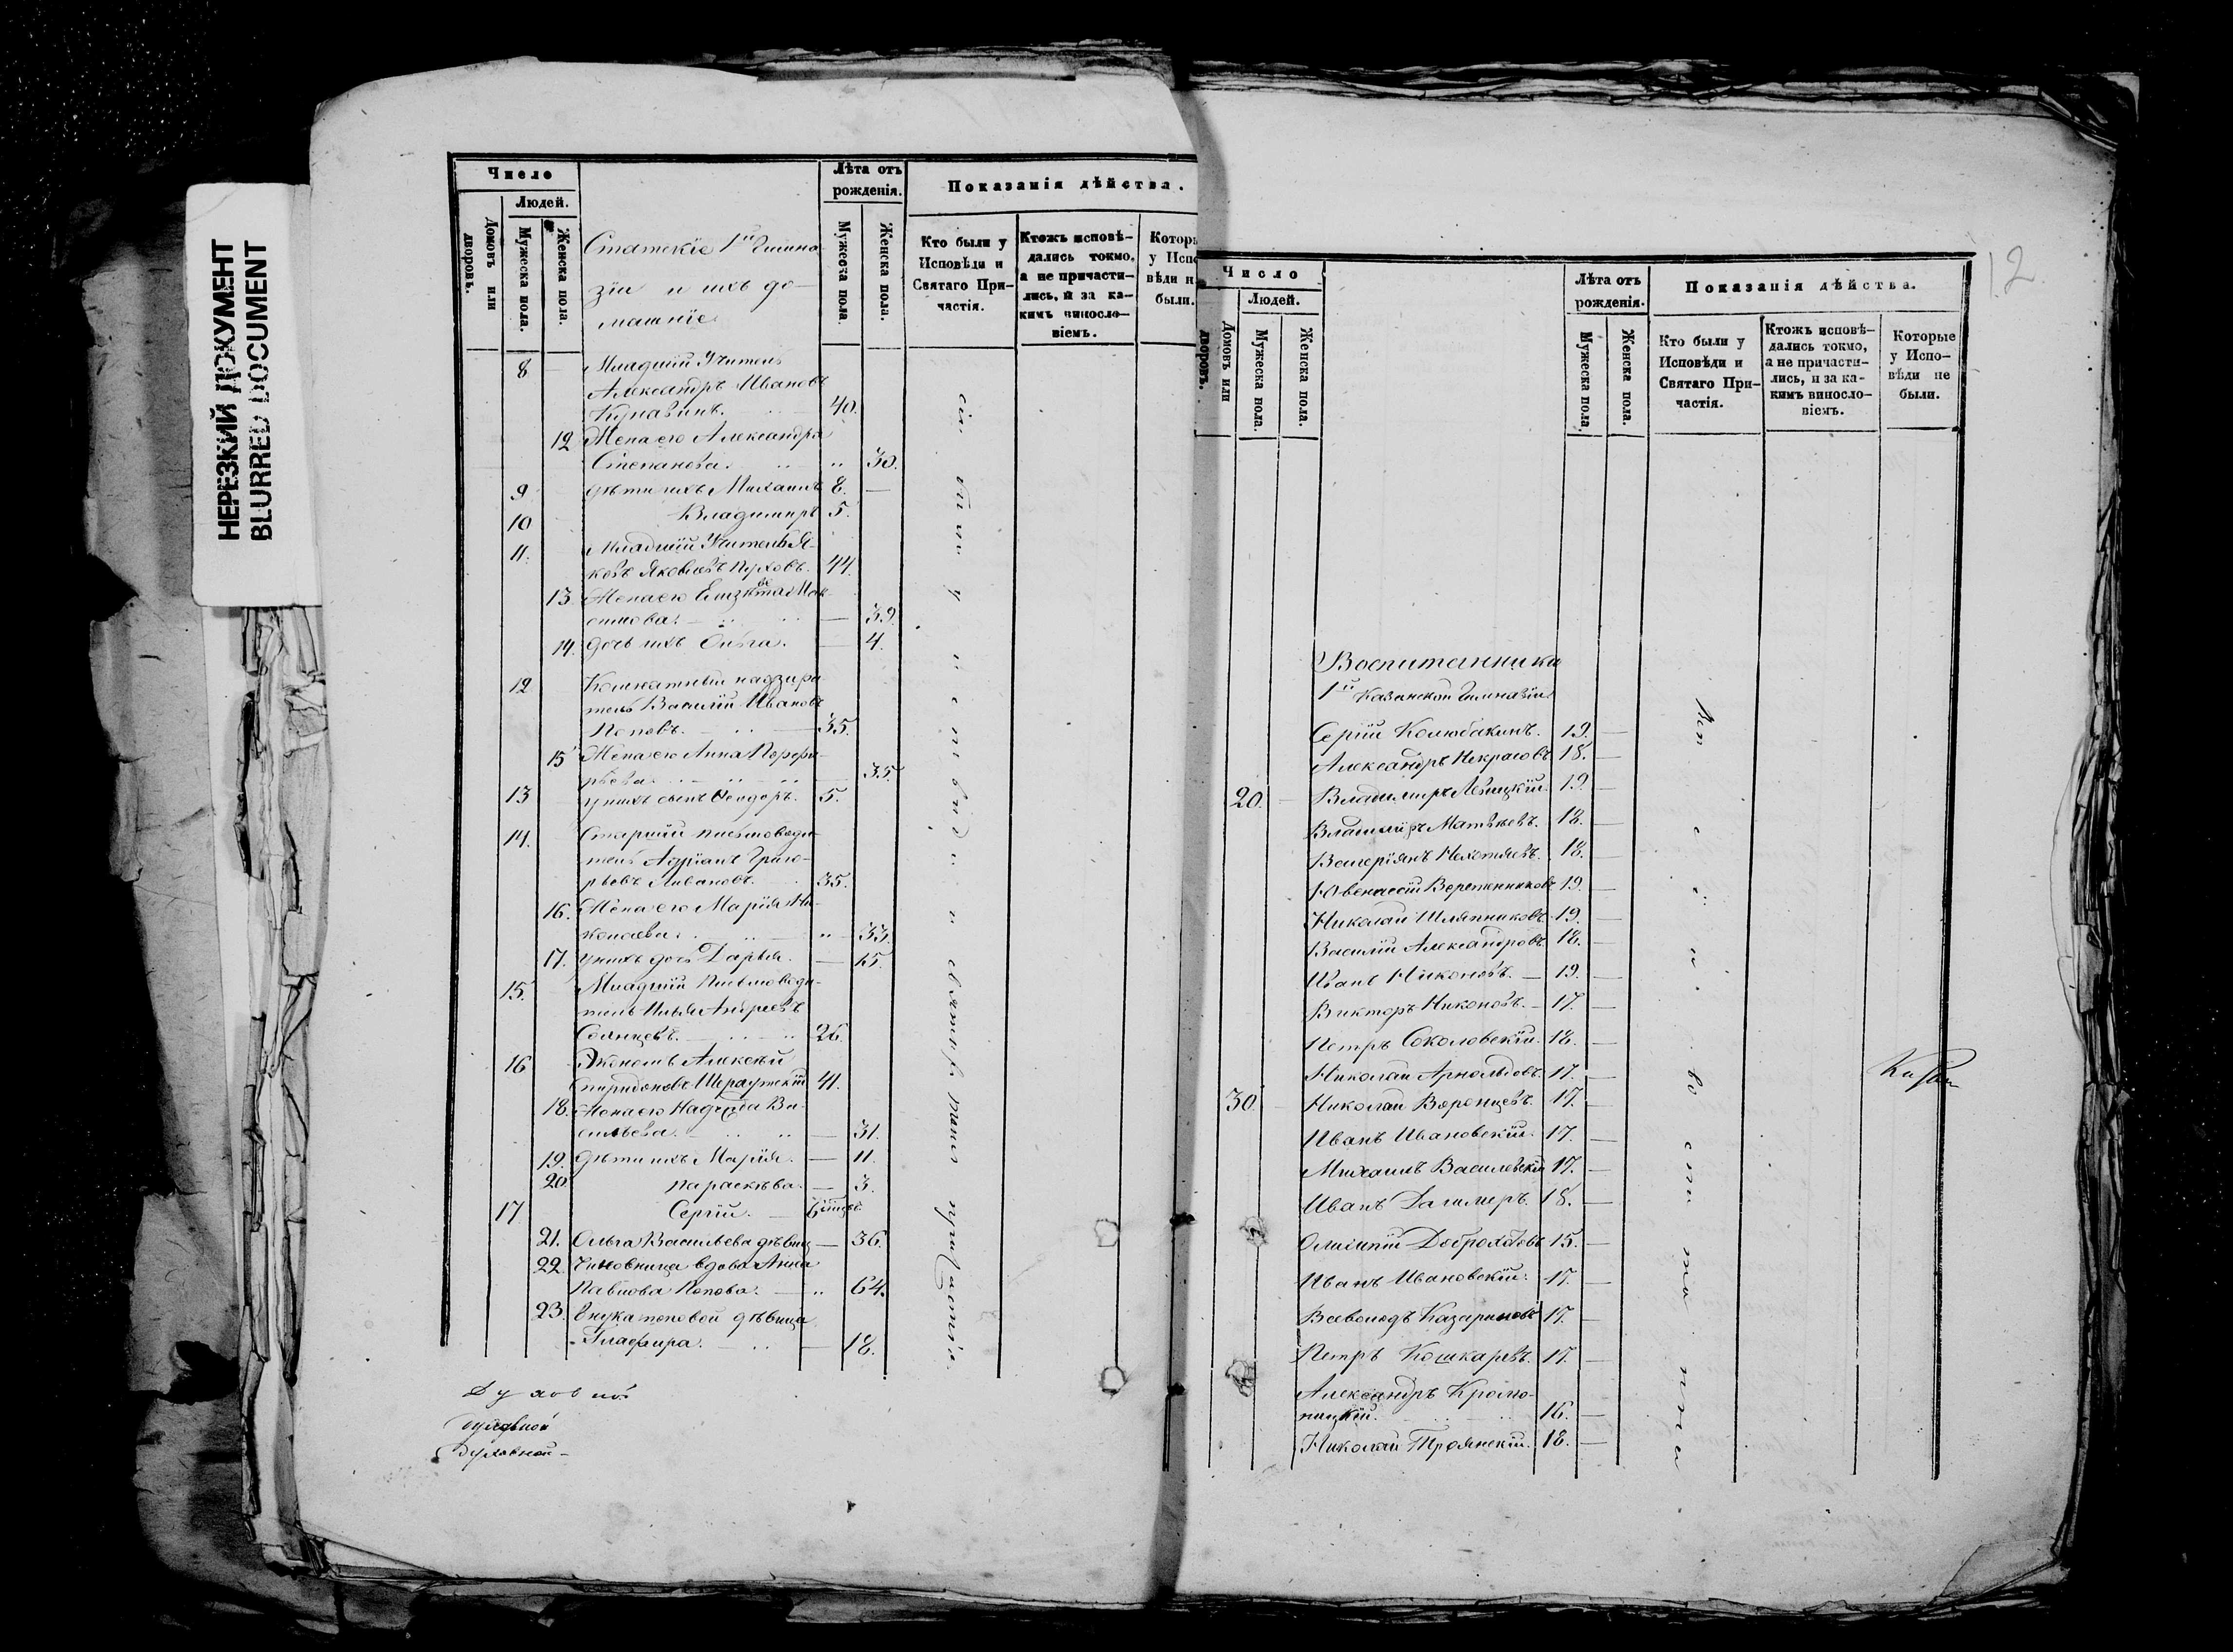 НЕРЕЗКИЙ ДОКУМЕНТ
BLURRED DOCUMENT
Число
Людей.
Домовъ или дворовъ.
Мужеска пола.
Женска пола.
Статскіе 1й Гимна-
зіи и ихъ до-
машніе
Лѣта отъ рожденія.
Мужеска пола.
Женска пола.
Показанія дѣйства.
Кто были у Исповѣди и Святаго При-частія.
Ктожъ исповѣ-дались токмо, а не причасти-лись, и за ка-кимъ винословіемъ.
Котор
у Испо
вѣди н
были.
8 Младшій Учитель
Александръ Ивановъ
40.
12 Жена его Александра
Степанова. 30.
9 Дѣти ихъ Михаилъ 8.
10 Владимиръ 5.
11. Младшій Учитель Я-
ковъ Яковлевъ Пуховъ. 44.
13. Жена его Елизавета Мак-
симова. 39.
14. Дочь ихъ Ольга. 4.
12 Комнатный надзира
тель Василій Ивановъ
Поповъ. 35.
15 Жена его Анна Порфи-
рьева. 35.
13 у нихъ сынъ Ѳеодоръ. 5.
14. Старшій письмоводи-
тель Адріанъ Григо-
рьевъ Ливановъ. 35.
16. Жена его Марія Ни-
колаева. 33.
17. у нихъ дочь Дарья. 15.
15. Младшій Письмоводи-
тель Илья Андреевъ
Солнцевъ. 26.
16 Экономъ Алексѣй
Спиридоновъ 41.
18. Жена его Надежда Ва-
сильева. 31.
19. Дѣти ихъ Марія. 11.
20 Параскева. 3.
17 Сергій. 6
21. Ольга Васильева дѣвица 36.
22. Чиновница вдова Анна
Павлова Попова. 64.
23. Внука Поповой дѣвица
Глафира. 18.
сіи были у исповѣди и святаго причастія.
Духовной
Духовной
12
Число
Людей.
Домовъ или дворовъ.
Мужеска пола.
Женска пола.
Лѣта отъ рожденія.
Мужеска пола.
Женска пола.
Показанія дѣйства.
Кто были у Исповѣди и Святаго При-частія.
Ктожъ исповѣ-дались токмо, а не причасти-лись, и за ка-кимъ винословіемъ.
Которые у Испо-вѣди не были.
Воспитанники
1й Казанской Гимназіи
Сергій Колюбакинъ. 19.
Александръ Некрасовъ 18.
20. Владимиръ 19.
Владиміръ Матвѣевъ. 18.
Валеріянъ 18.
Ювеналій Веретенниковъ 19.
Николай Шляпниковъ. 19.
Василій Александровъ. 18.
Иванъ Никоновъ. 19.
Викторъ Никоновъ. 17.
Петръ Соколовскій. 18.
Николай Арнольдовъ. 17.
30. Николай Воронцовъ. 17.
Иванъ Ивановскій. 17.
Михаилъ Василевскій 17.
Иванъ 18.
15.
Иванъ Ивановскій. 17.
Всеволодъ Казариновъ 17.
Петръ Кошкаревъ. 17.
Александръ
16.
Николай Троянскій. 18.